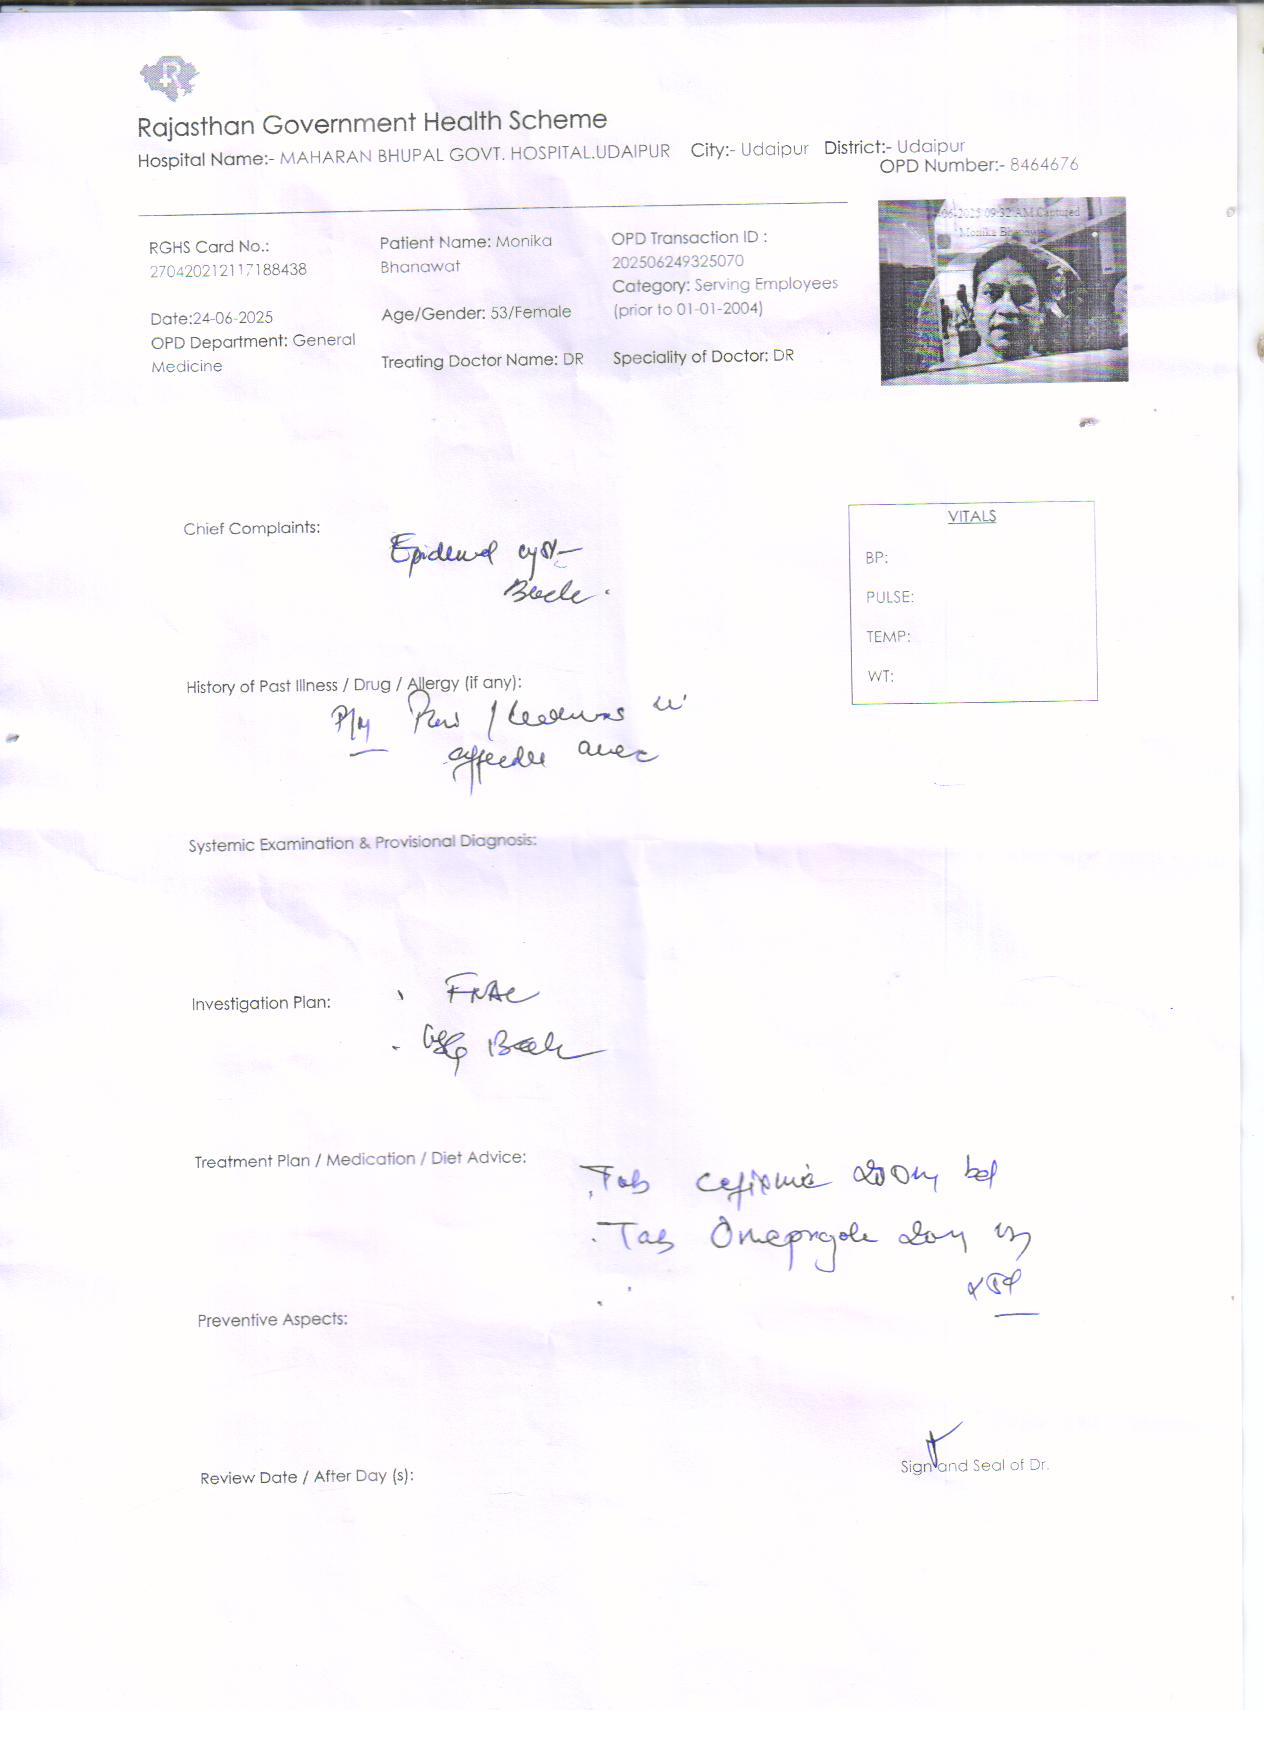 Rajasthan Government Health Scheme
Hospital Name:- MAHARAN BHUPAL GOVT. HOSPITAL.UDAIPUR City:- Udaipur District:- Udaipur
OPD Number:- 8464676
RGHS Card No.:
270420212117188438
Date:24-06-2025
OPD Department: General
Medicine
Patient Name: Monika
Bhanawat
Age/Gender: 53/Female
Treating Doctor Name: DR
OPD Transaction ID :
202506249325070
Category: Serving Employees
(prior to 01-01-2004)
Speciality of Doctor: DR
-06-2025 09:32 AM Captured
Monika
Chief Complaints:
Epidermal cyst
VITALS
BP:
PULSE:
TEMP:
WT:
History of Past Illness / Drug / Allergy (if any):
Systemic Examination & Provisional Diagnosis:
Investigation Plan:
FNAC
Treatment Plan / Medication / Diet Advice:
Tab Cefixime 200mg
Tab
Preventive Aspects:
Sign and Seal of Dr.
Review Date / After Day (s):